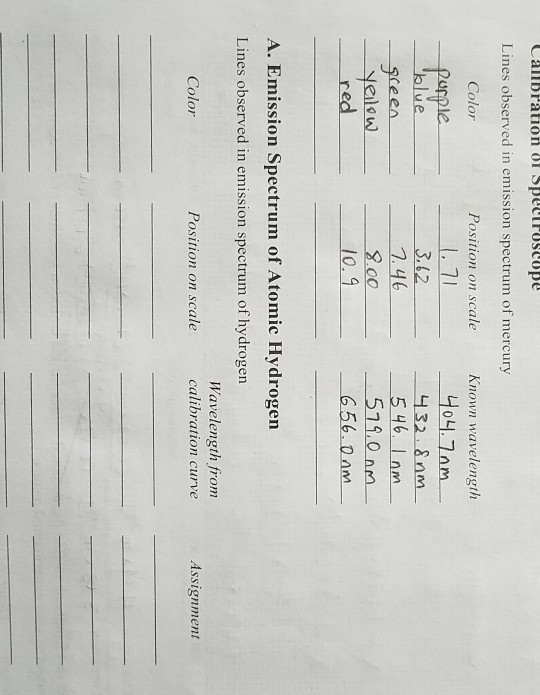 Calibration of Spectroscope
Lines observed in emission spectrum of mercury
Color Position on scale Known wavelength
purple 1.71 404.7nm
blue 3.62 432.8nm
green 7.46 546.1nm
yellow 8.00 579.0nm
red 10.9 656.0nm
A. Emission Spectrum of Atomic Hydrogen
Lines observed in emission spectrum of hydrogen
Wavelength from
Color Position on scale calibration curve Assignment